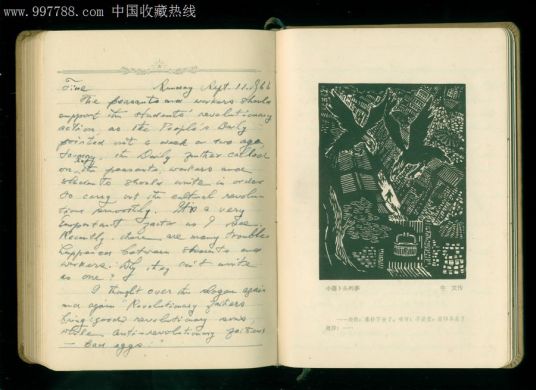 www.997788.com 中国收藏热线
Fine Sunday Sept. 11. 1966
The peasants and workers should
support the students' revolutionary
action, as the People's Daily
printed out a week or two ago
Today, the Daily further called
on the peasants, workers and
students should unite in order
to carry out the cultural revolu-
tion smoothly. It is a very
important factor as I see.
Recently, there are many troubles
happen between students and
workers. Why they can't unite
as one?
I thought over the slogan again
and again Revolutionary fathers
bring good revolutionary sons,
while anti-revolutionary fathers
— bad eggs!